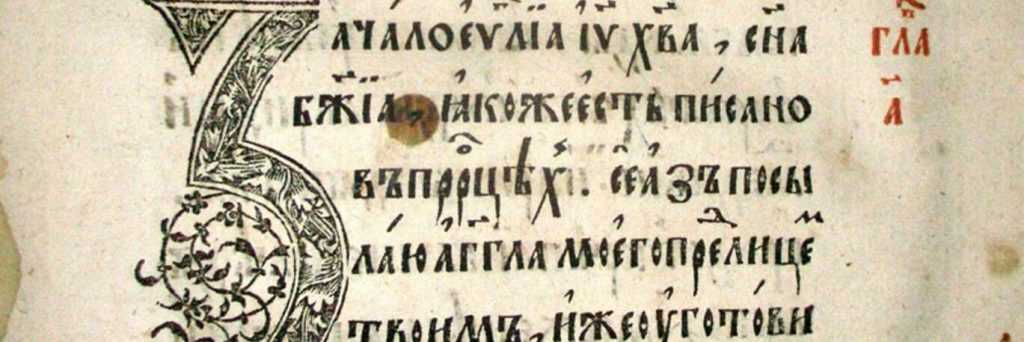 Зачало еѵⷢ҇лїа іѵ҃ хв҃а, сн҃а
бж҃їа, ꙗкоже естъ писано
въ прⷪ҇рцѣⷯ. се азъ посы
лаю агг҃ла моего преⷣ лицеⷨ
твоимъ, иже оуготови
гла
а҃